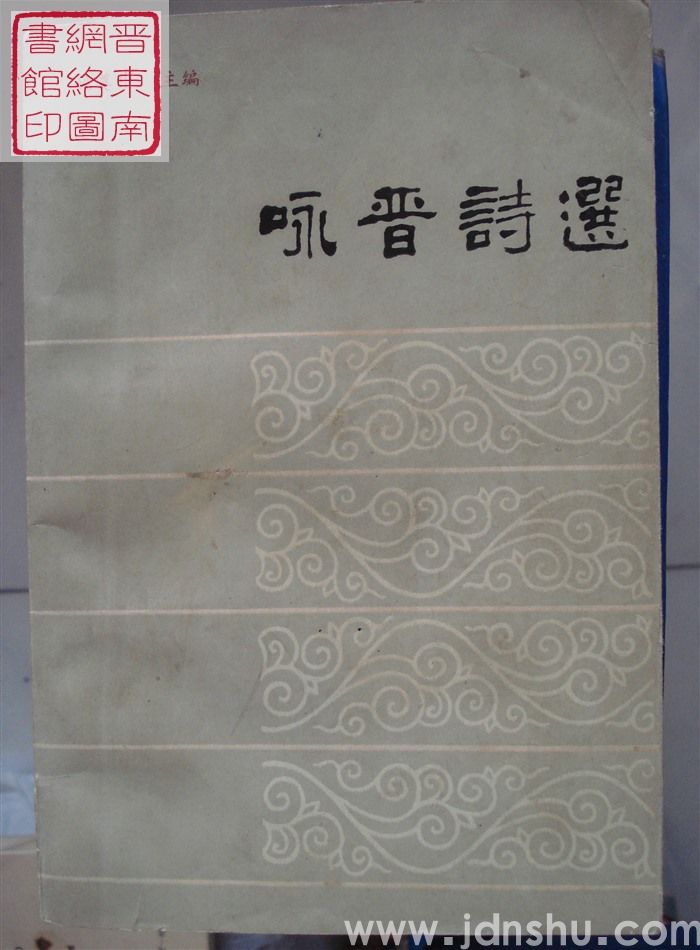 晋東南
網絡圖
書館印
主编
咏晋詩選
www.jdnshu.com